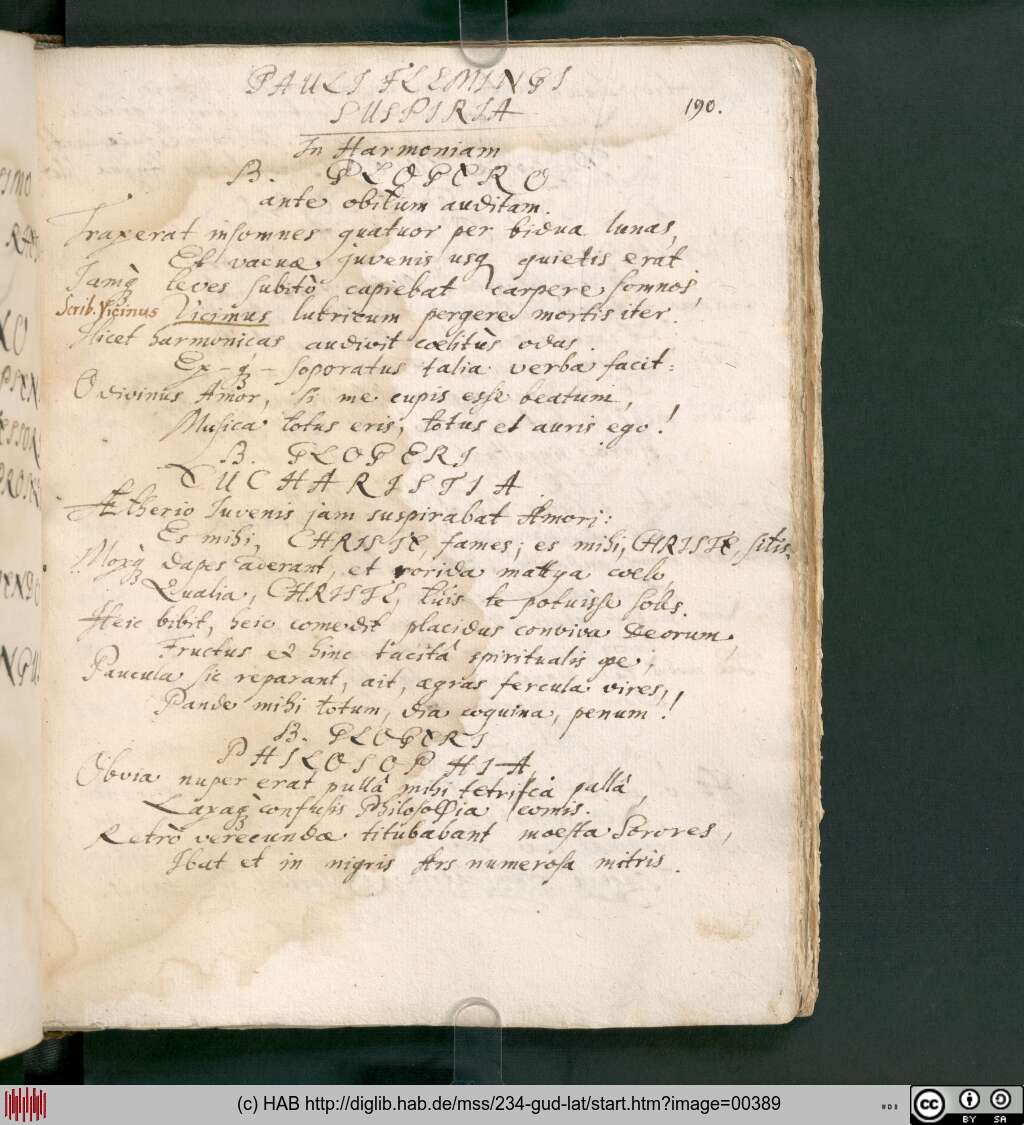 PAULI FLEMINGI
SUSPIRIA
190.
In Harmoniam
B. GLOGERO
ante obitum auditam.
Traxerat insomnes quatuor per bidua lunas,
Et vacuæ juvenis usq quietis erat
Jamq́ leves subitò cupiebat carpere somnos,
Scrib. Vicinus
Vicimus lubricum pergere mortis iter.
Ilicet harmonicas audivit cœlitùs odas.
Ex-q́-soporatus talia verba facit:
O divinus Amor, si me cupis esse beatum,
Musica totus eris, totus et auris ego!
B. GLOGERI
EUCHARISTIA
Ætherio Iuvenis jam suspirabat Amori:
Es mihi, CHRISTE, fames; es mihi, CHRISTE, sitis.
Moxq́ dapes aderant, et rorida mattya cœlo,
Qualia, CHRISTE, tuis te potuisse soles.
Heic bibit, heic comedit placidus conviva Deorum,
Fructus et hinc tacitâ spiritualis ope;
Paucula sic reparant, ait, ægras fercula vires,
Pande mihi totum, dia coquina, penum!
B. GLOGERI
PHILOSOPHIA
Obvia nuper erat pullâ mihi tetrica pullâ,
Laxaq́ confusis PhilosoΦia comis.
Retrò verecundæ titubabant moesta Sorores,
Ibat et in nigris Ars numerosa mitris.
(c) HAB http://diglib.hab.de/mss/234-gud-lat/start.htm?image=00389
cc BY SA